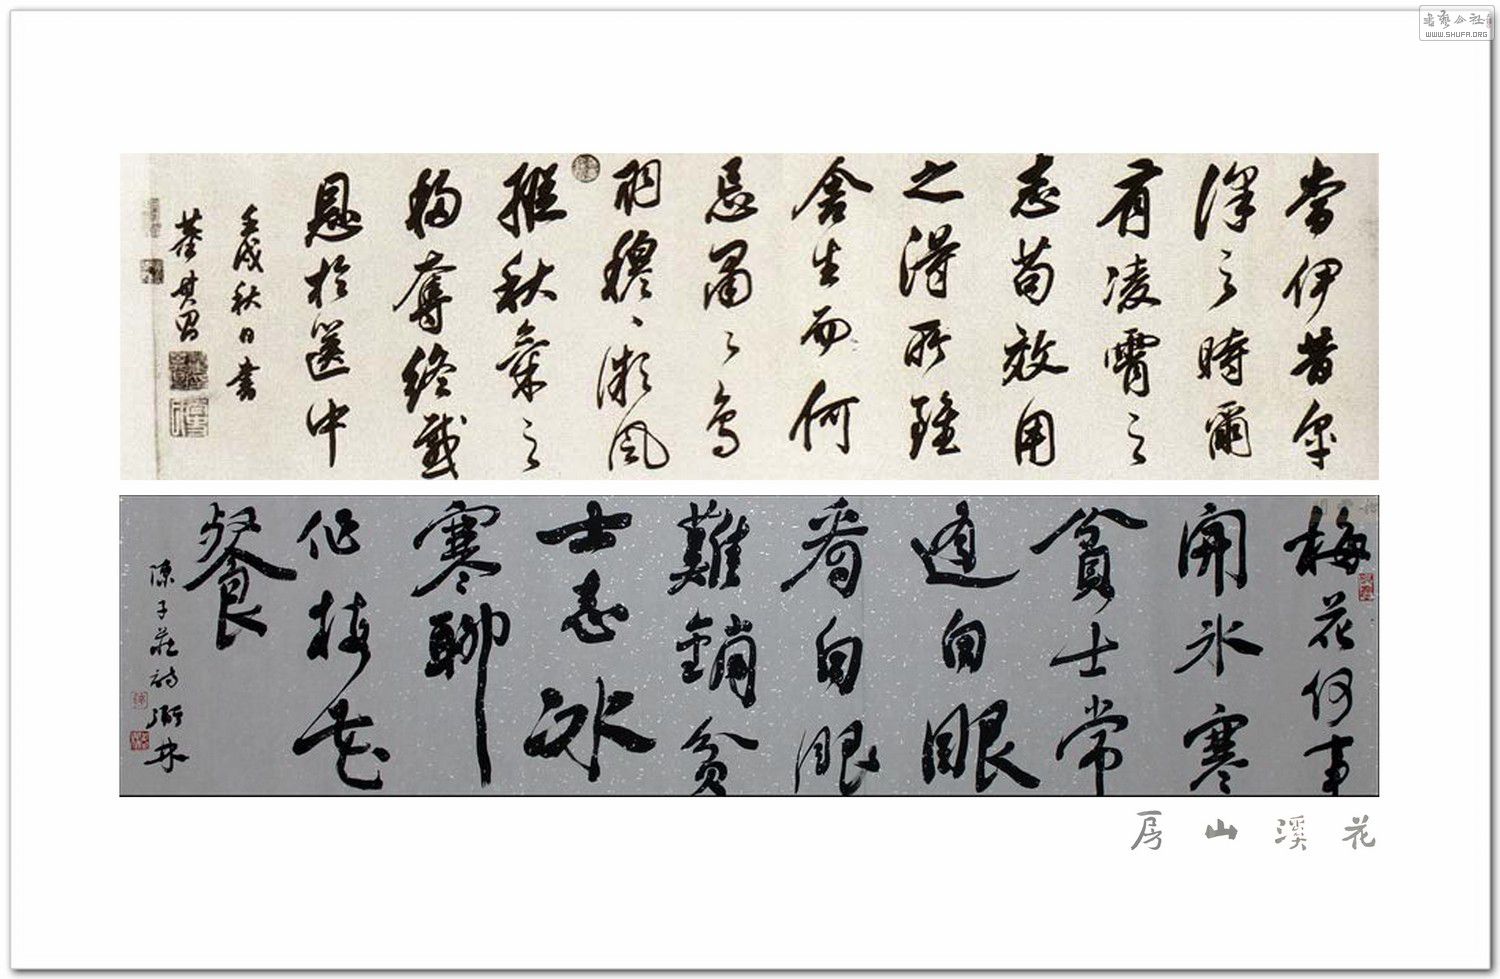 書藝公社
WWW.SHUFA.ORG
當伊昔皋
澤之時爾
有凌霄之
志苟效用
之得所雖
舍生而何
忌肅〻鳥
羽穆〻風
縱秋氣之
移奪終感
恩於篋中
壬戌秋日書
董其昌
梅花何事
開冰寒
貧士常
逢白眼
看白眼
難銷貧
士志冰
寒聊
作梅花
餐
陳子莊詩
花溪山房